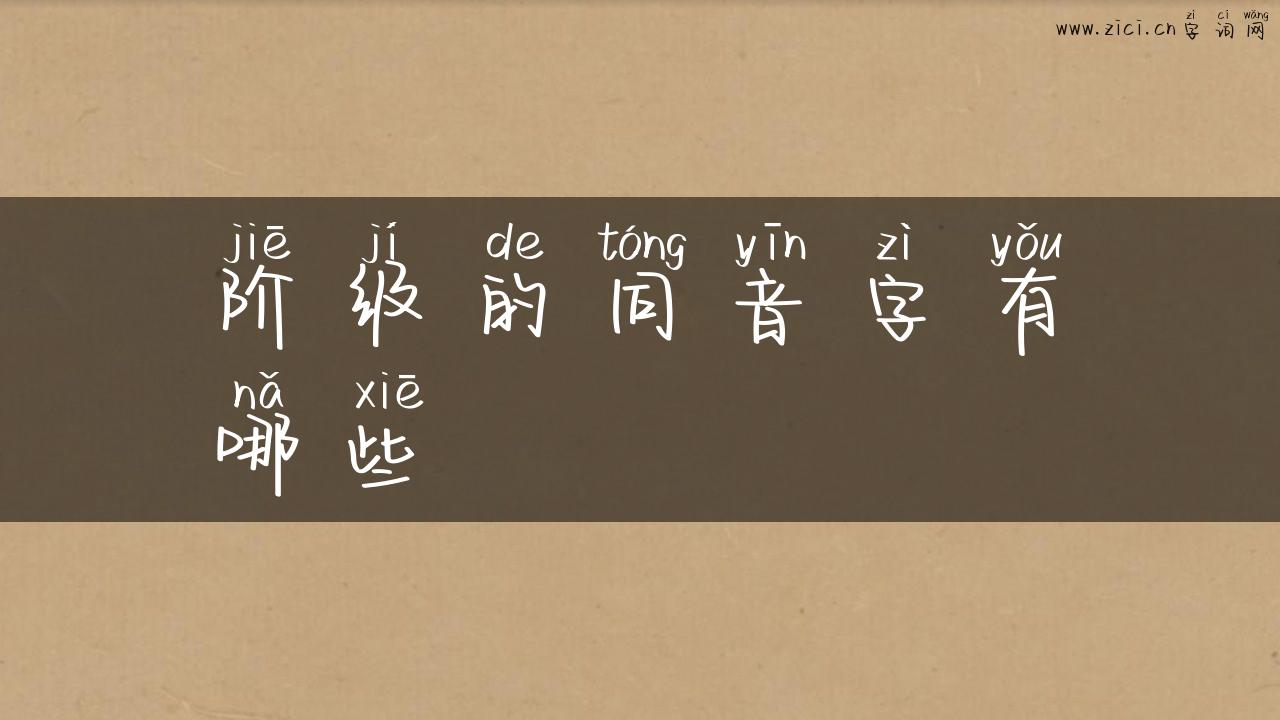 zì cí wǎng
www.zici.cn 字 词 网
jiē jí de tóng yīn zì yǒu
阶 级 的 同 音 字 有
nǎ xiē
哪 些